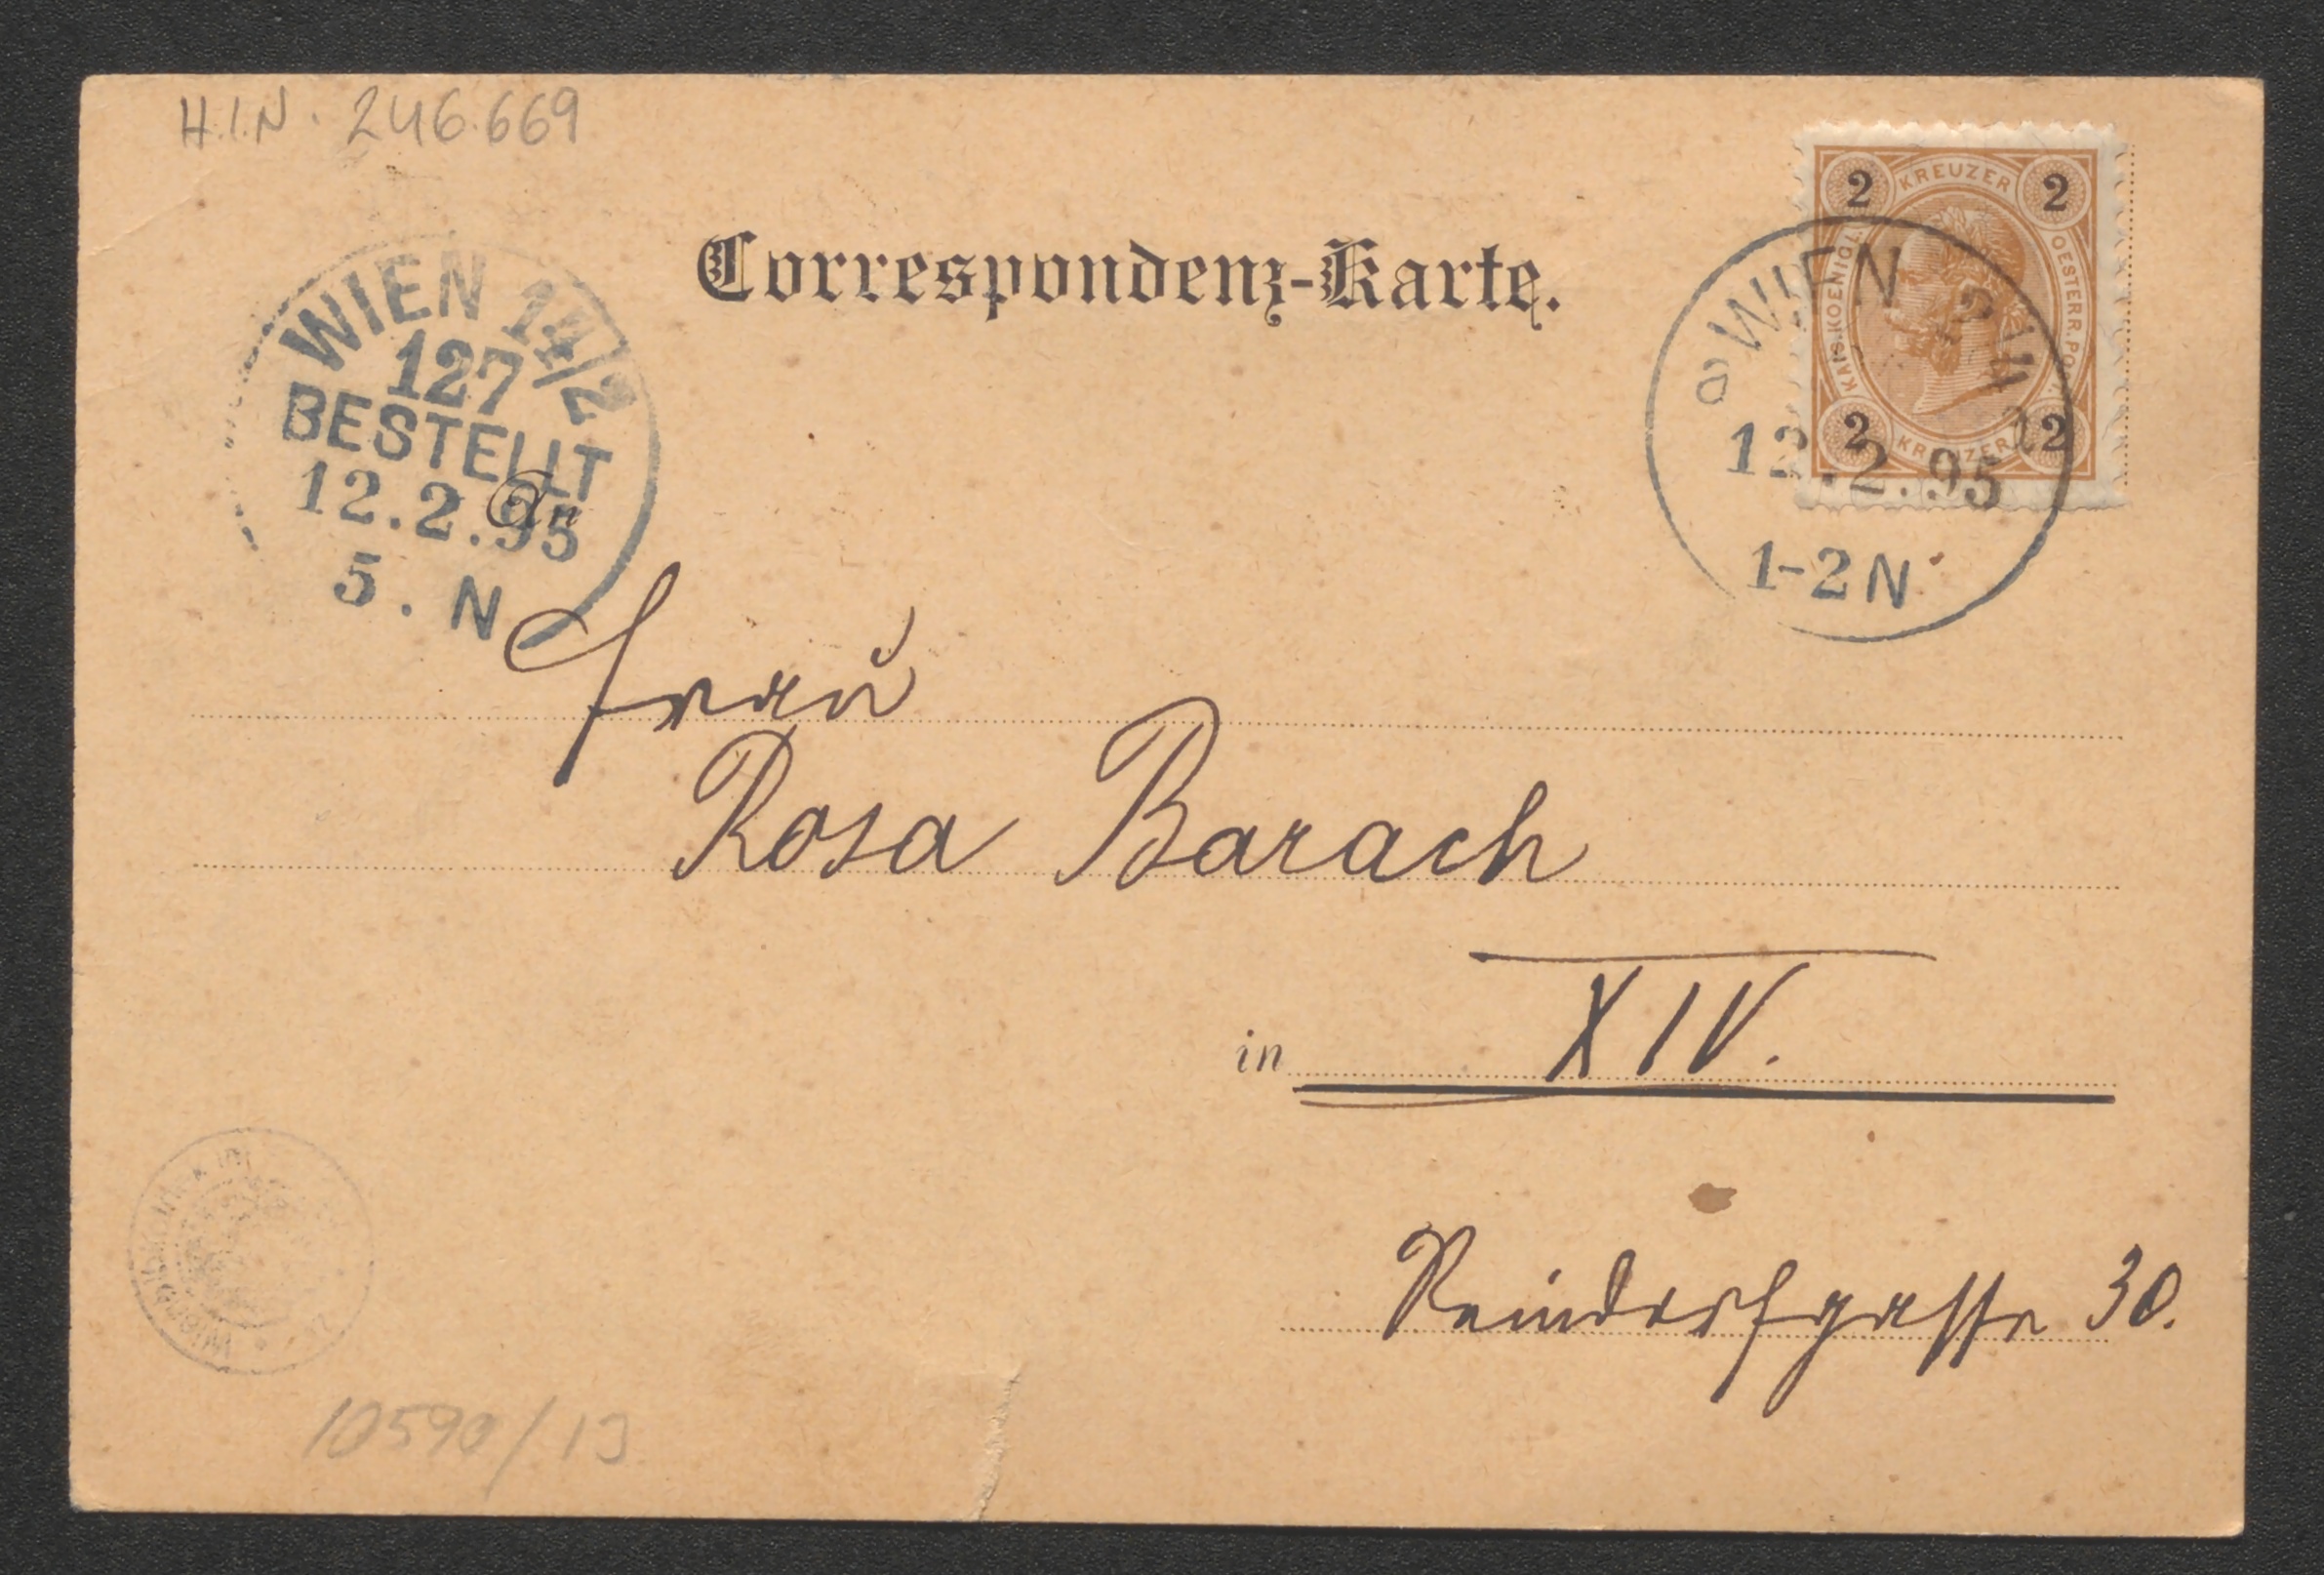 H.I.N. 246.669
Correspondenz-Karte.
WIEN 14/2
127
BESTELLT
12.2.95
5. N
An
KREUZER
2 2
KAIS. KOENIGL.
OESTERR. POST
2 2
KREUZER
WIEN
12.2.95
1-2 N
Frau
Rosa Barach
in XIV.
Reindorfgasse 30.
10590/13